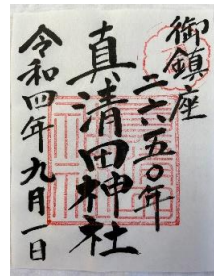 御鎮座
二六五〇年
真清田神社
令和四年九月一日